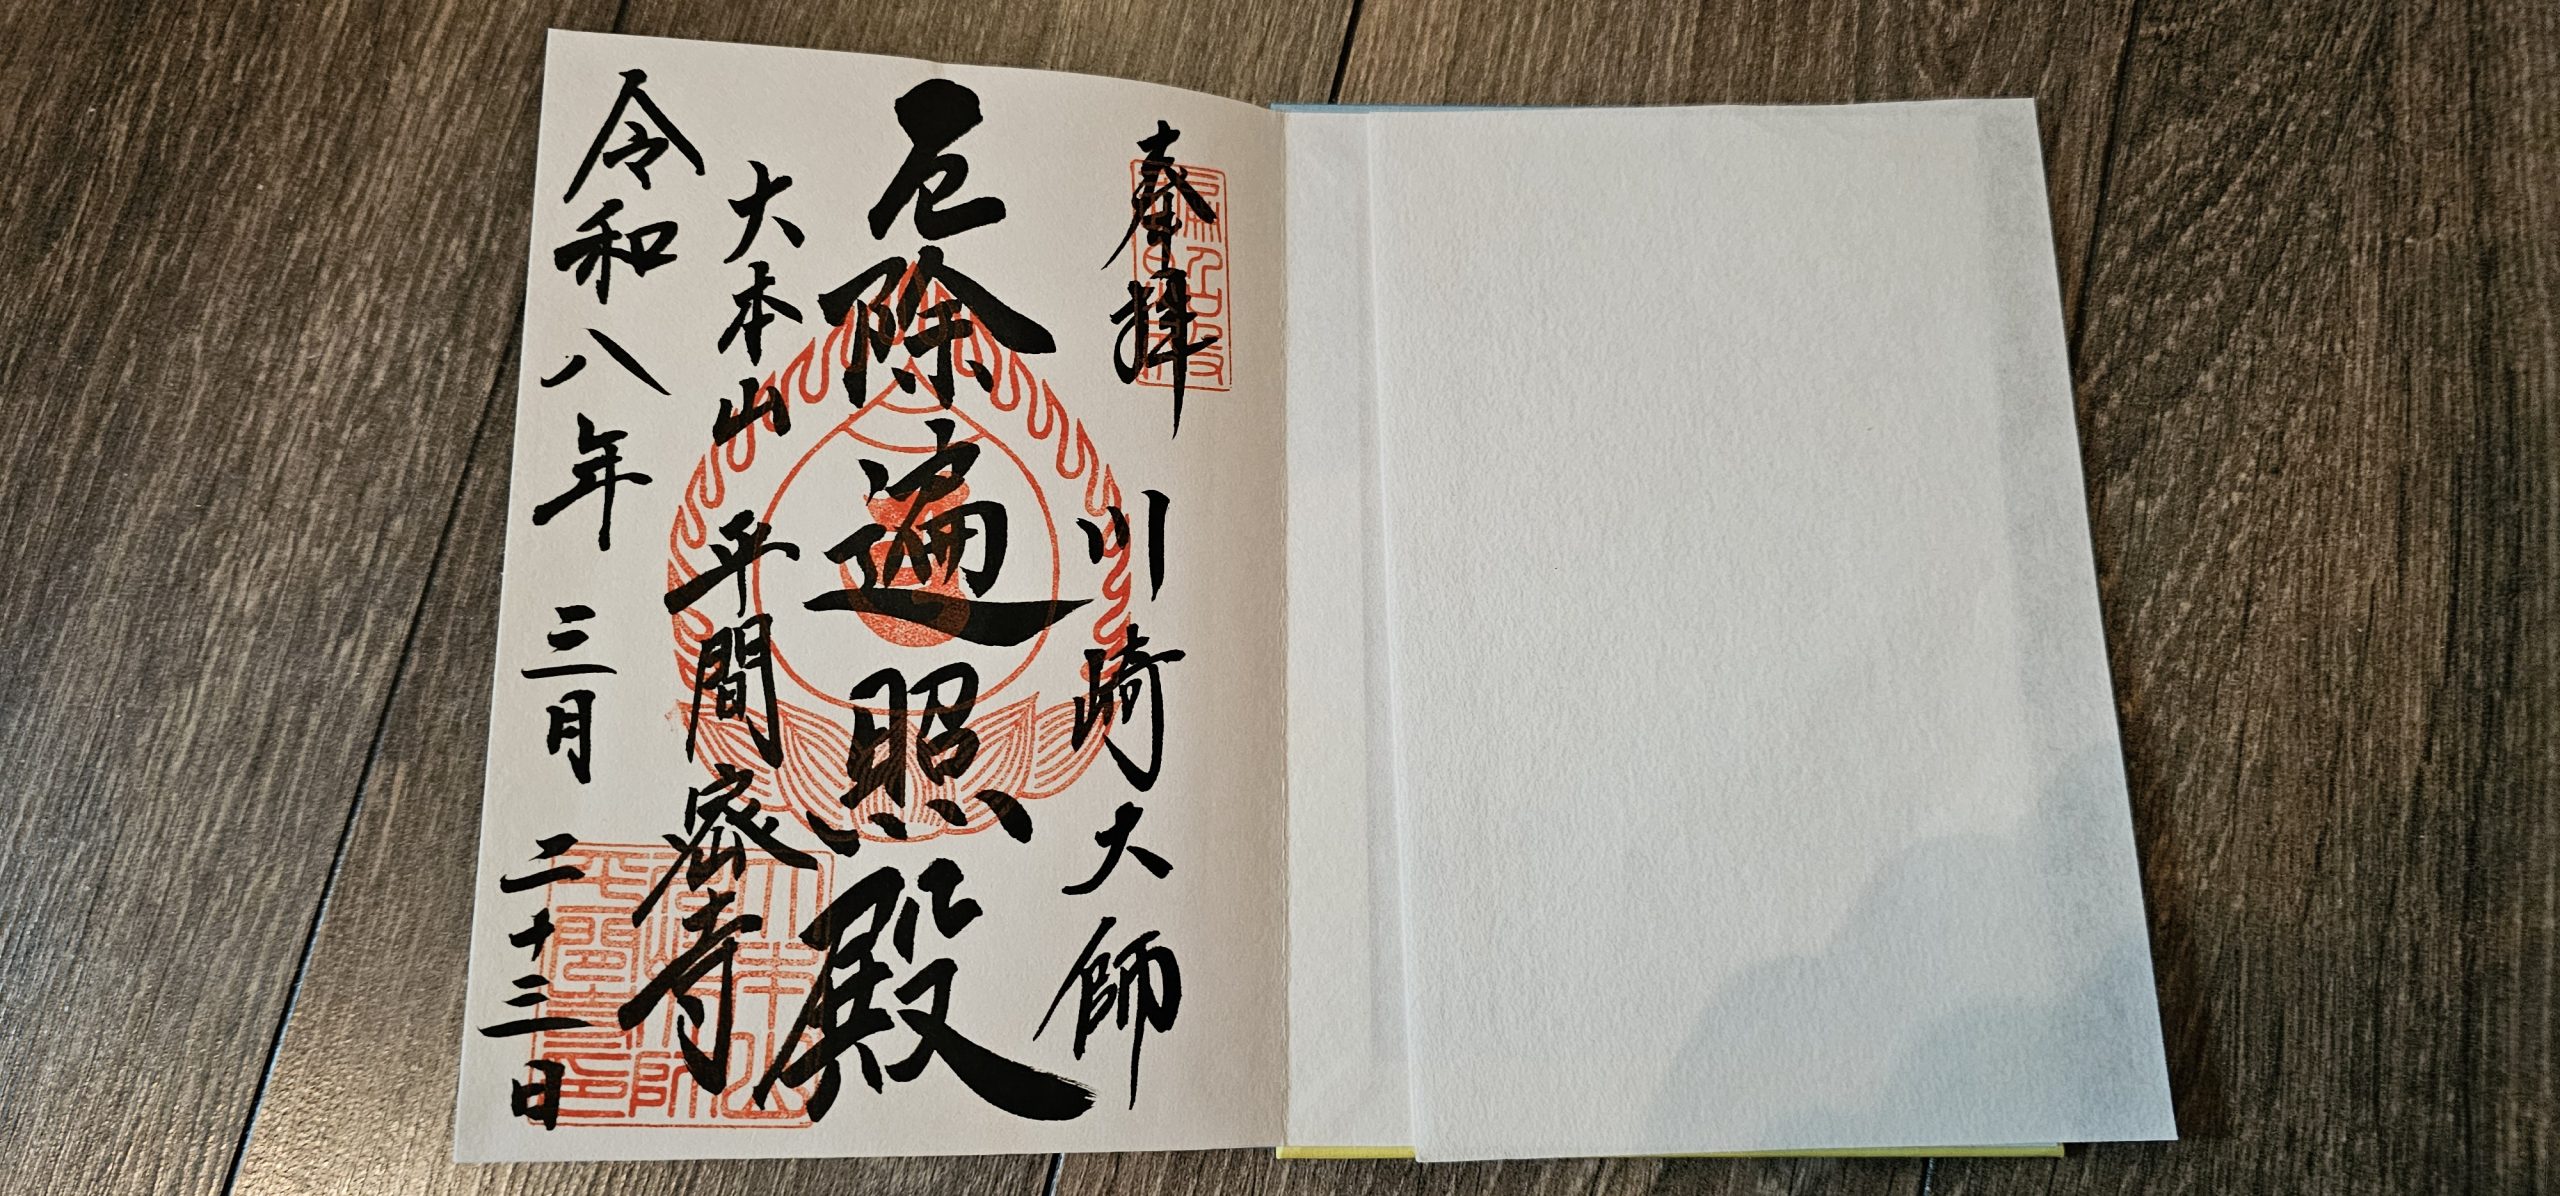 奉拝 川崎大師
厄除遍照殿
大本山 平間寺
令和八年 三月 二十三日